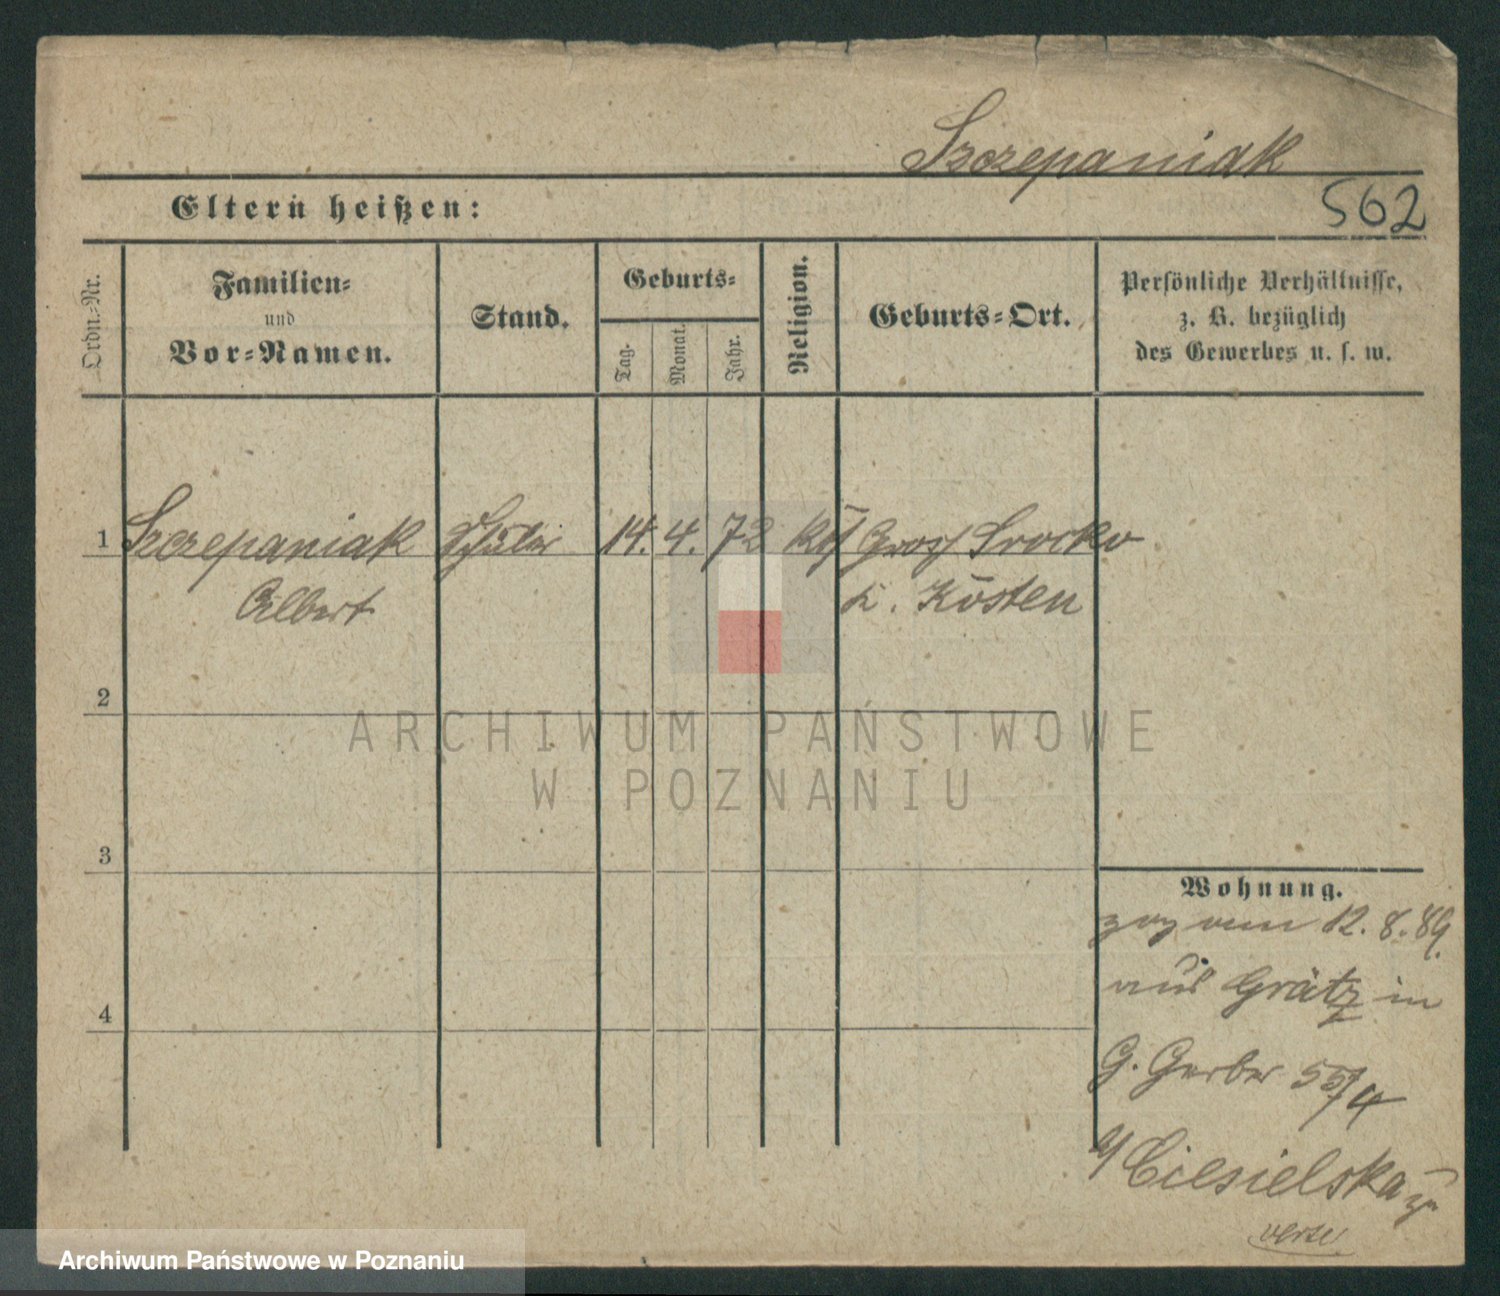 Szczepaniak
562
Eltern heißen:
Ordn.-Nr.
Familien-
und
Vor-Namen.
Stand.
Geburts-
Tag.
Monat.
Jahr.
Religion.
Geburts-Ort.
Persönliche Verhältnisse,
z. B. bezüglich
des Gewerbes u. s. w.
1 Szczepaniak Schüler 14. 4. 72 kth Gross Srocko
Albert K. Kosten
2
3
4
Wohnung.
zog am 12. 8. 89.
aus Grätz in
G. Gerber 55/4
b/ Ciesielska
verse
ARCHIWUM PAŃSTWOWE
W POZNANIU
Archiwum Państwowe w Poznaniu